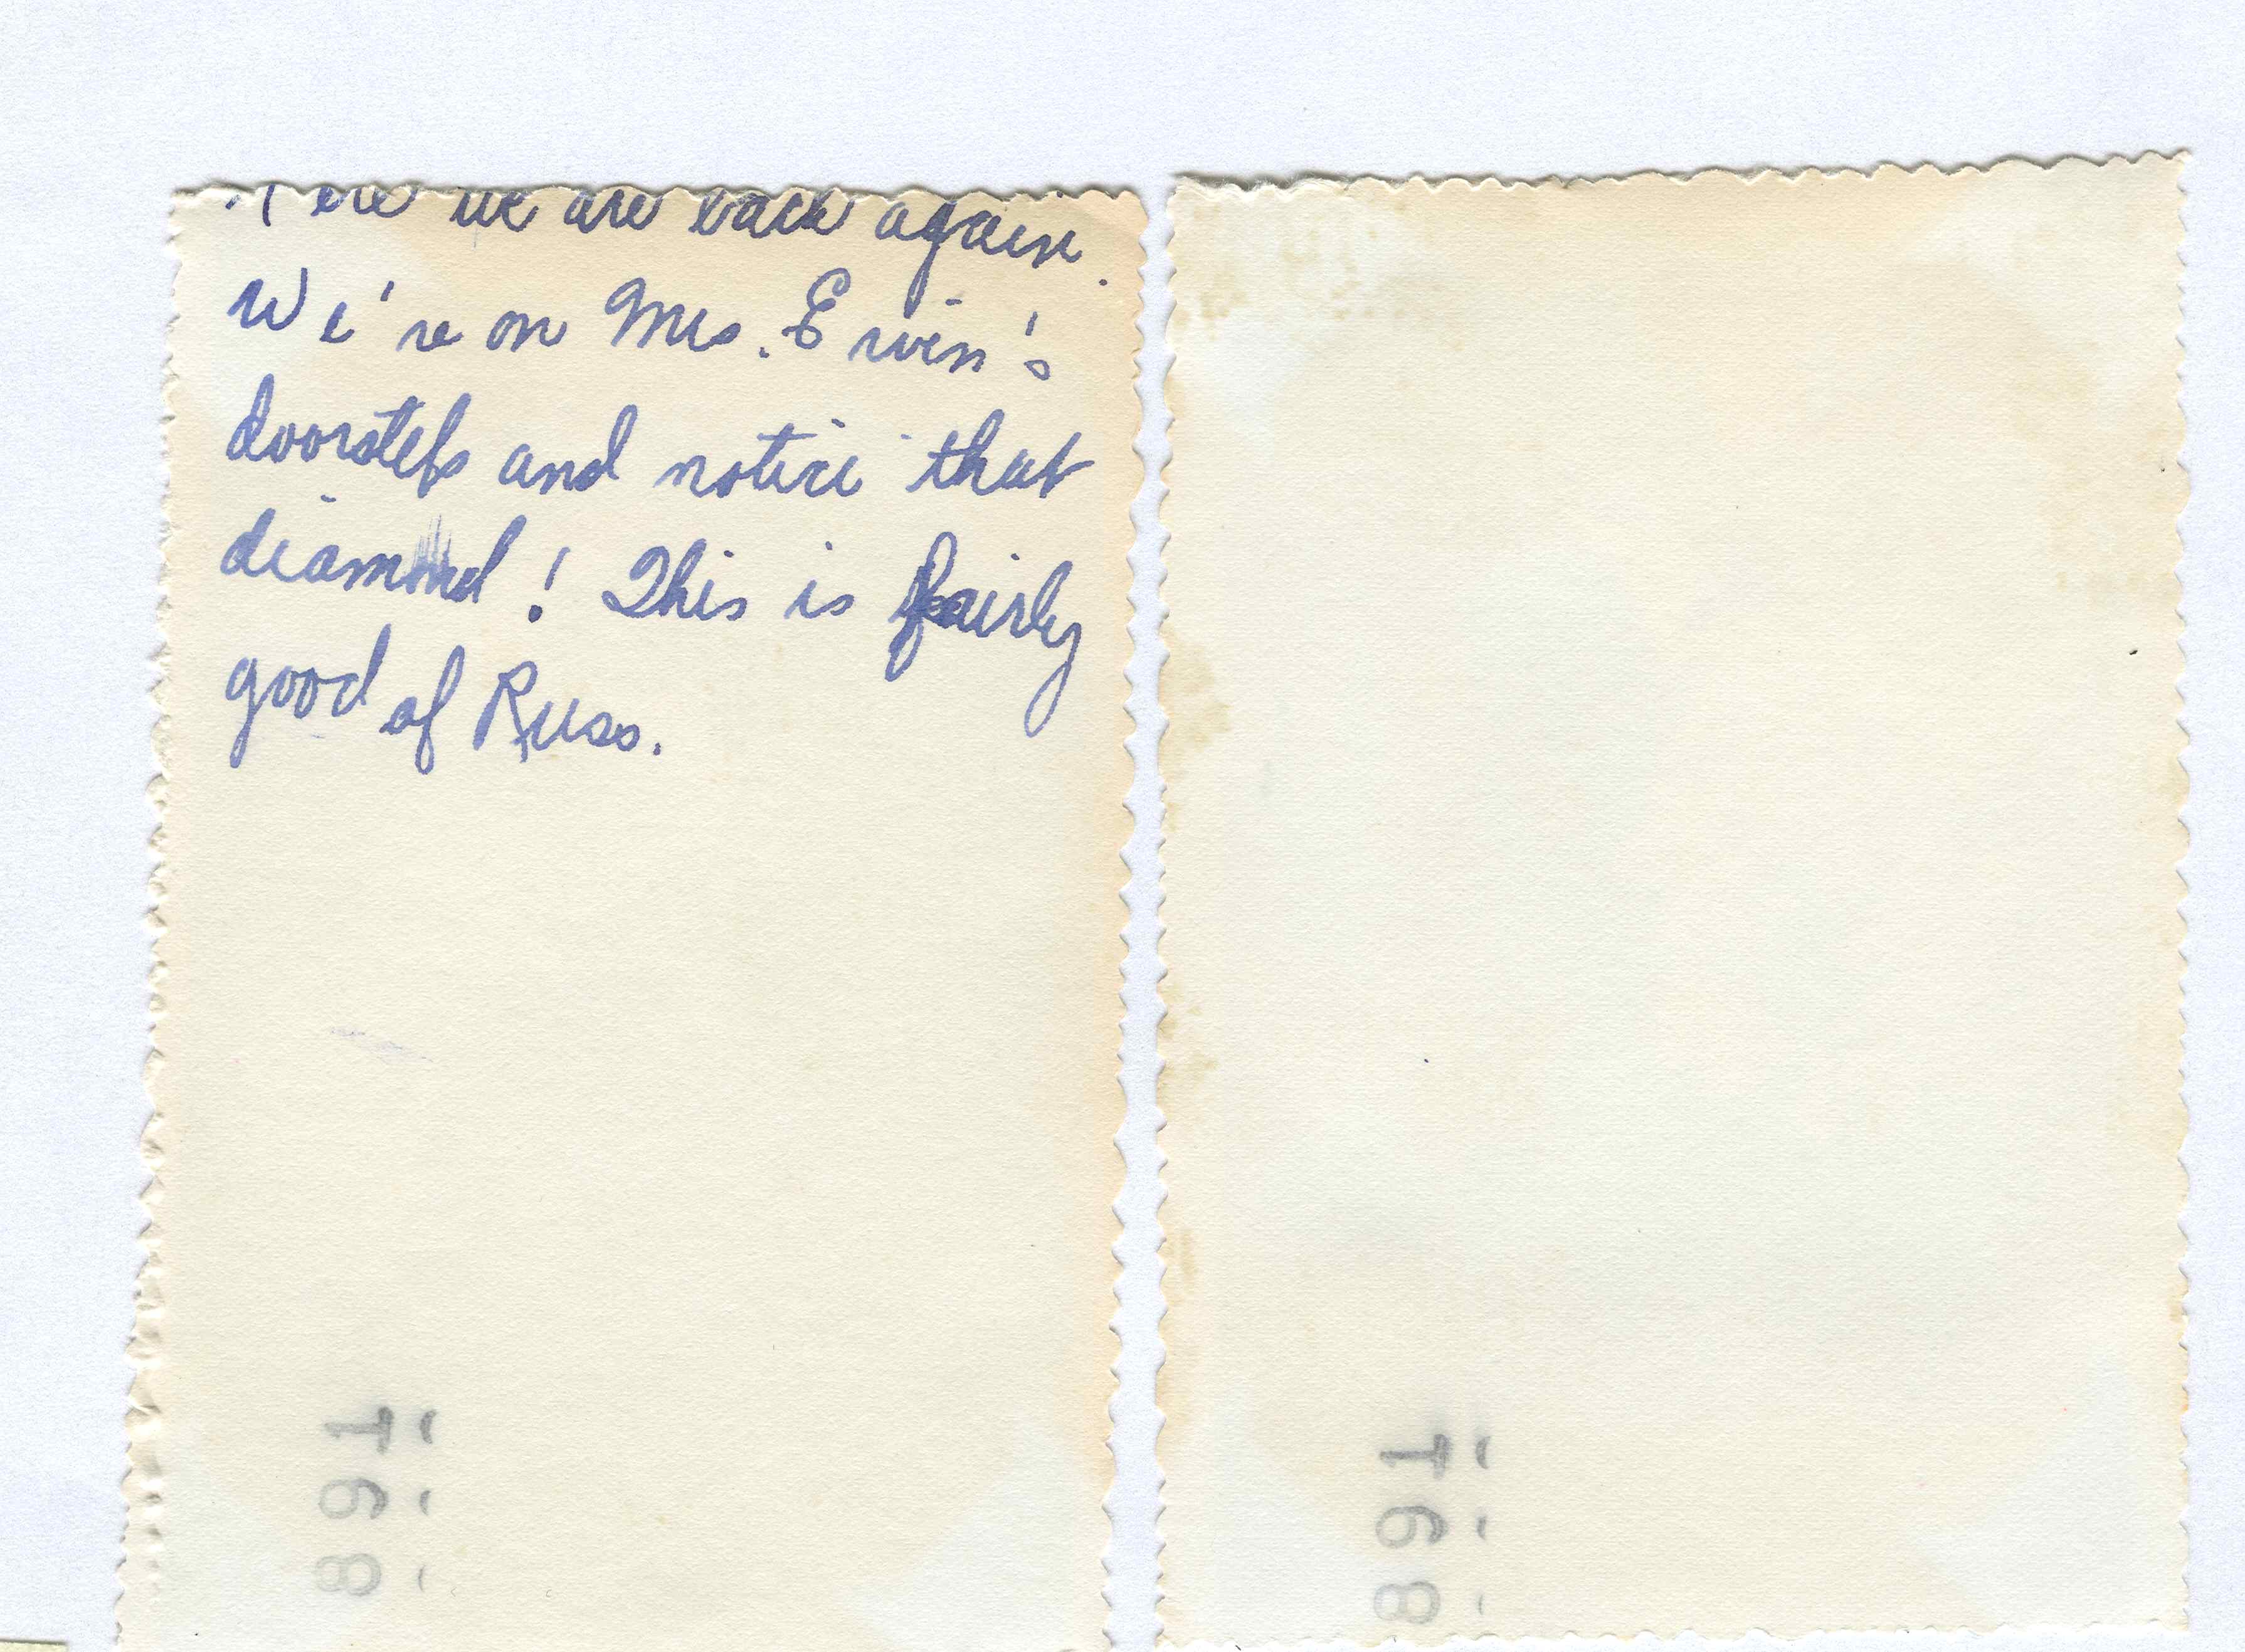 Here we are back again.
We're on Mrs. Erwin's
doorstep and notice that
diamond! This is fairly
good of Russ.
891
891